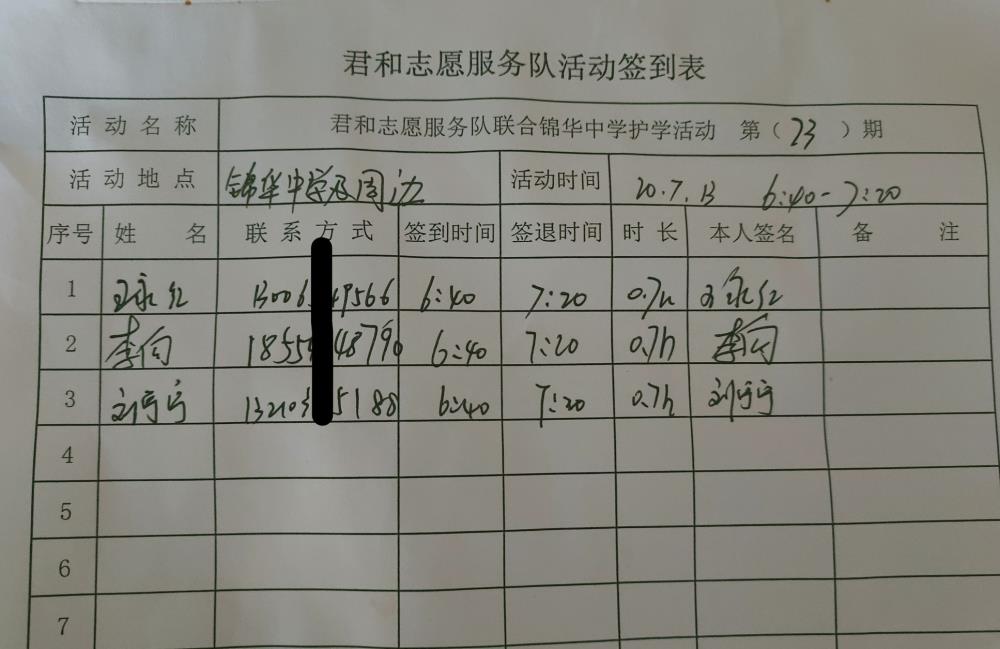 君和志愿服务队活动签到表
活动名称 君和志愿服务队联合锦华中学护学活动 第（23）期
活动地点 锦华中学及周边 活动时间 20.7.13 6:40-7:20
序号 姓名 联系方式 签到时间 签退时间 时长 本人签名 备注
1 王永红 13006 49566 6:40 7:20 0.7h 王永红
2 李向 1855 48790 6:40 7:20 0.7h 李向
3 刘宁宁 13210 5188 6:40 7:20 0.7h 刘宁宁
4
5
6
7